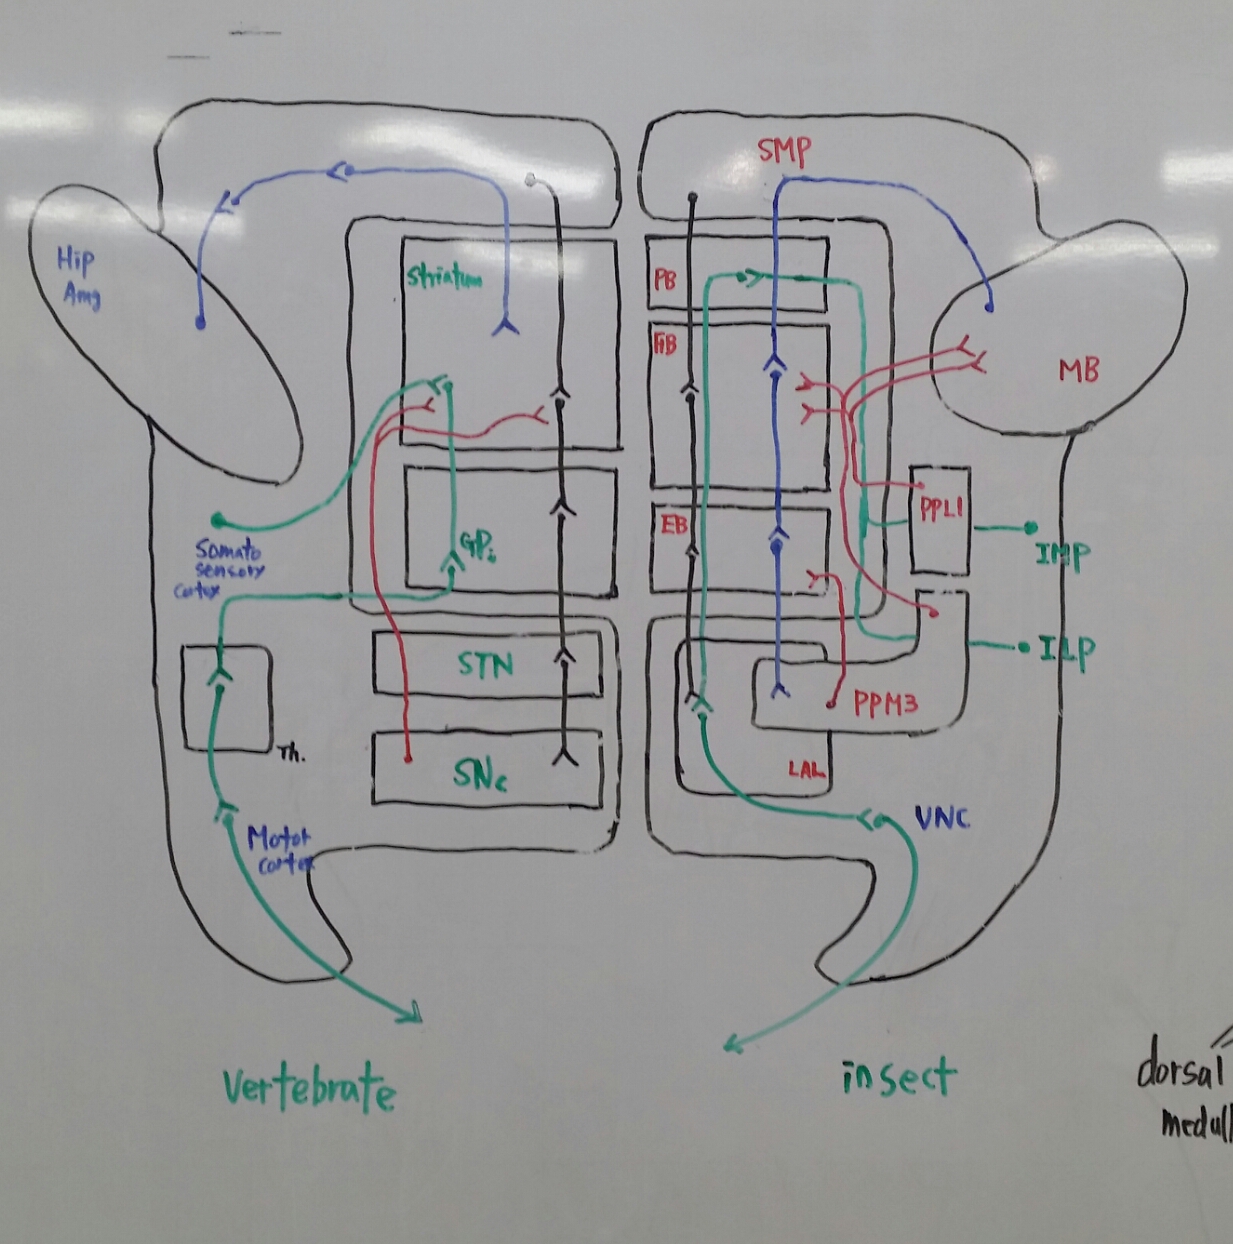 SMP
Hip
Amg
Striatum
PB
FB
MB
PPL1
EB
GPi
IMP
Somato
sensory
cortex
STN
ILP
PPM3
Th.
SNc
LAL
VNC
Motor
cortex
vertebrate
insect
dorsal
medull